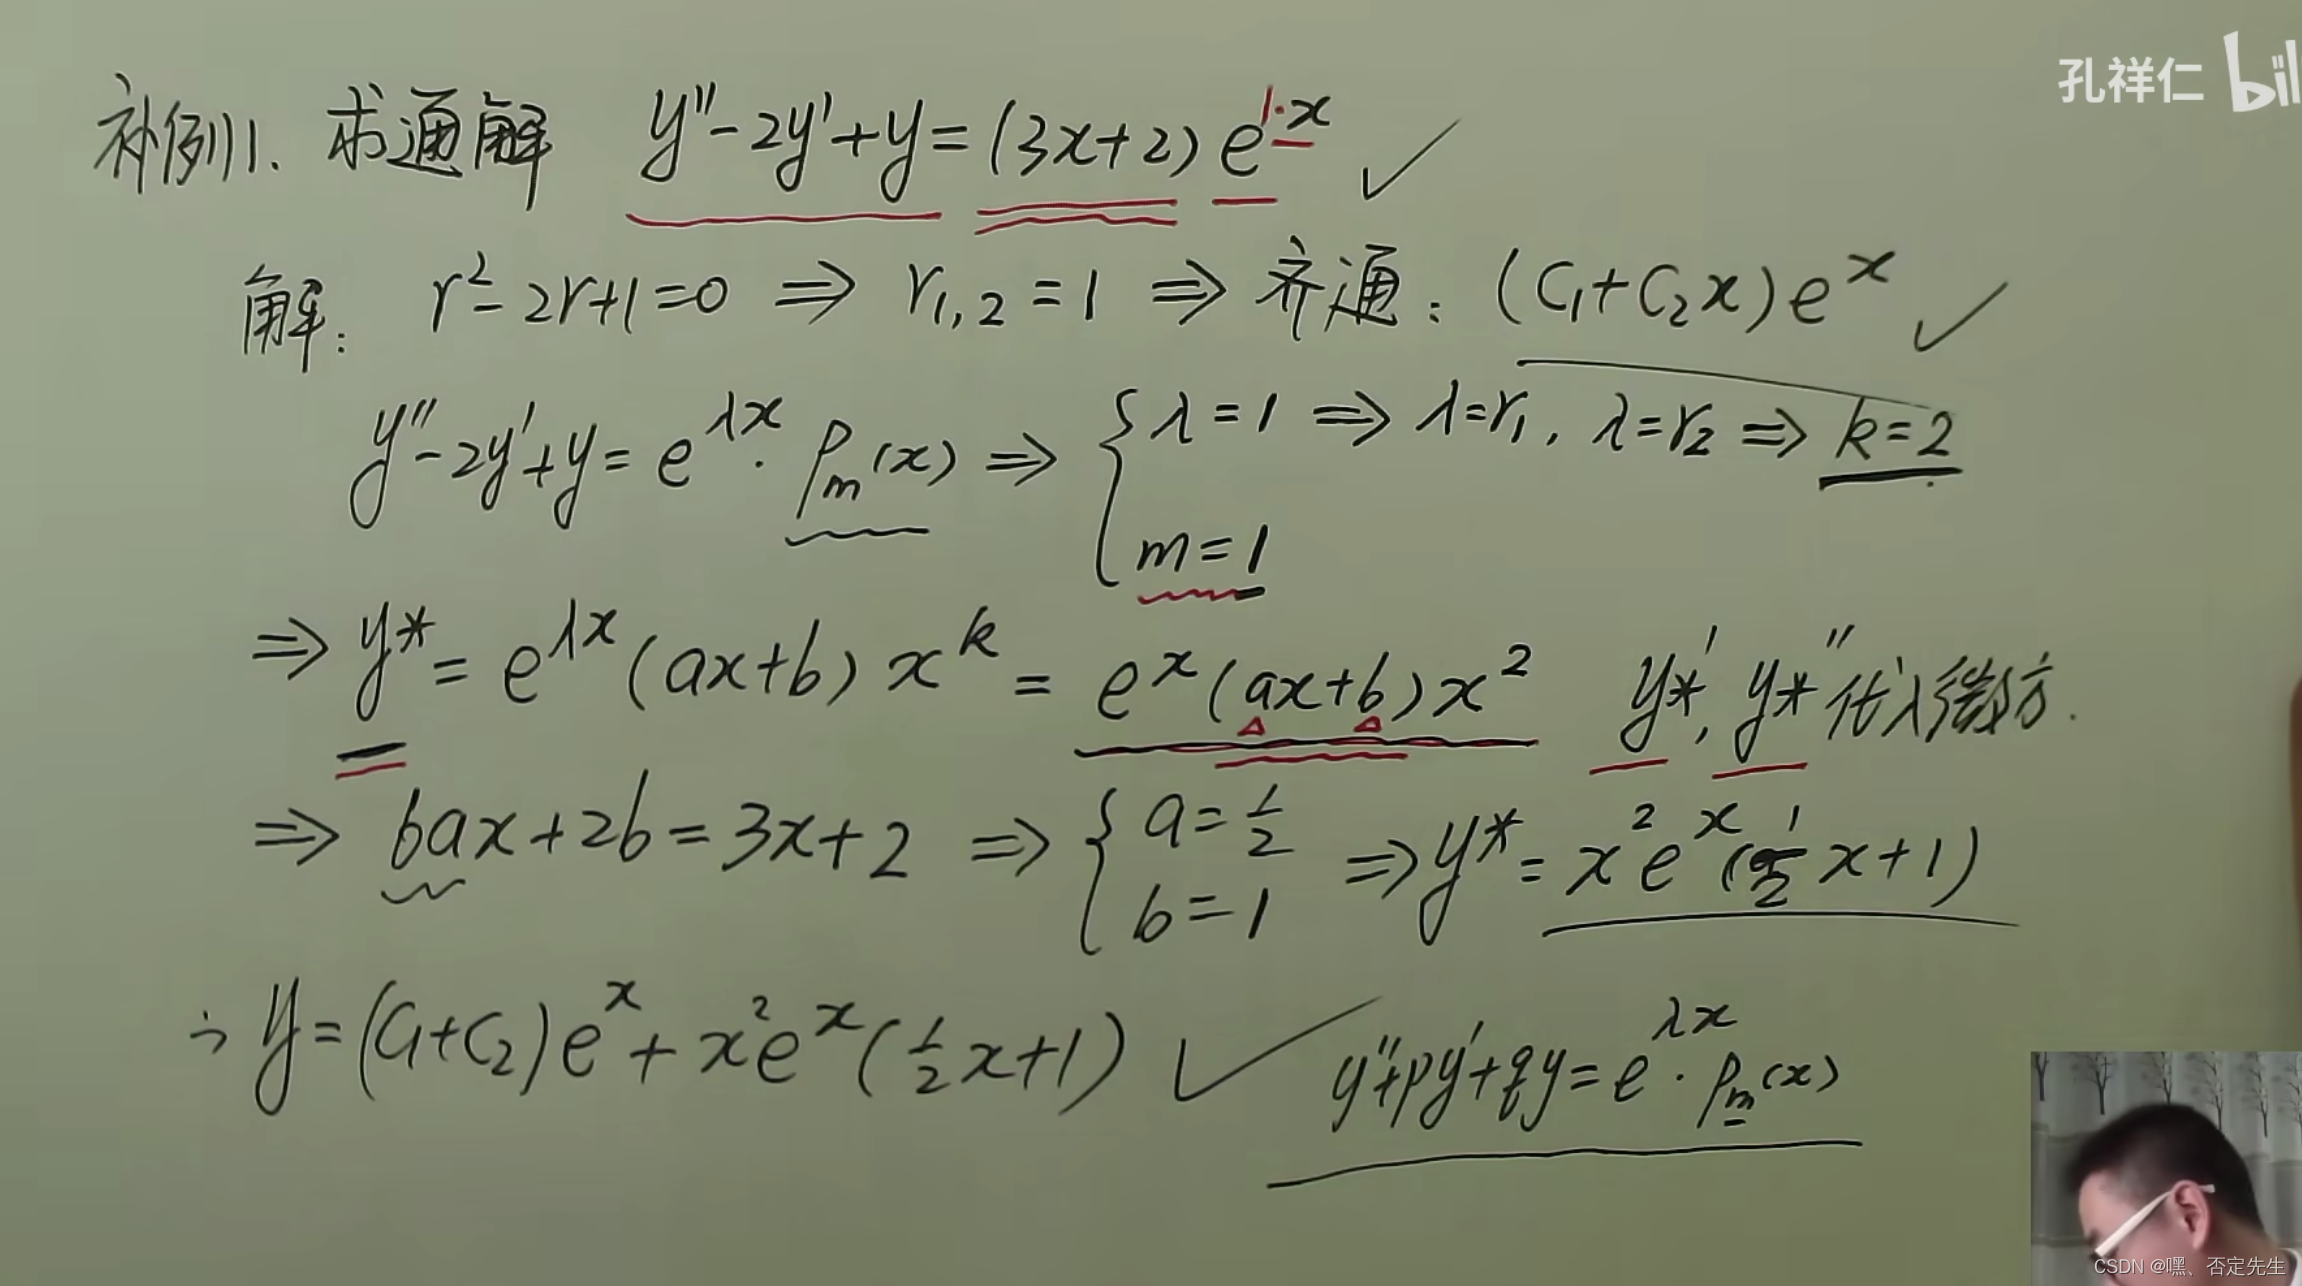 孔祥仁 bil
补例1. 求通解 y''-2y'+y=(3x+2)e^{1·x} ✓
解: r²-2r+1=0 ⇒ r₁,₂=1 ⇒ 齐通: (C₁+C₂x)e^x ✓
y''-2y'+y=e^{λx}·P_m(x) ⇒ { λ=1 ⇒ λ=r₁, λ=r₂ ⇒ k=2
m=1
⇒ y*=e^{λx}(ax+b)x^k=e^x(ax+b)x² y*', y*''代入微方.
⇒ 6ax+2b=3x+2 ⇒ { a=1/2 ⇒ y*=x²e^x(1/2 x+1)
b=1
∴ y=(C₁+C₂)e^x+x²e^x(1/2 x+1) ✓
y''+py'+qy=e^{λx}·P_m(x)
CSDN @嘿、否定先生